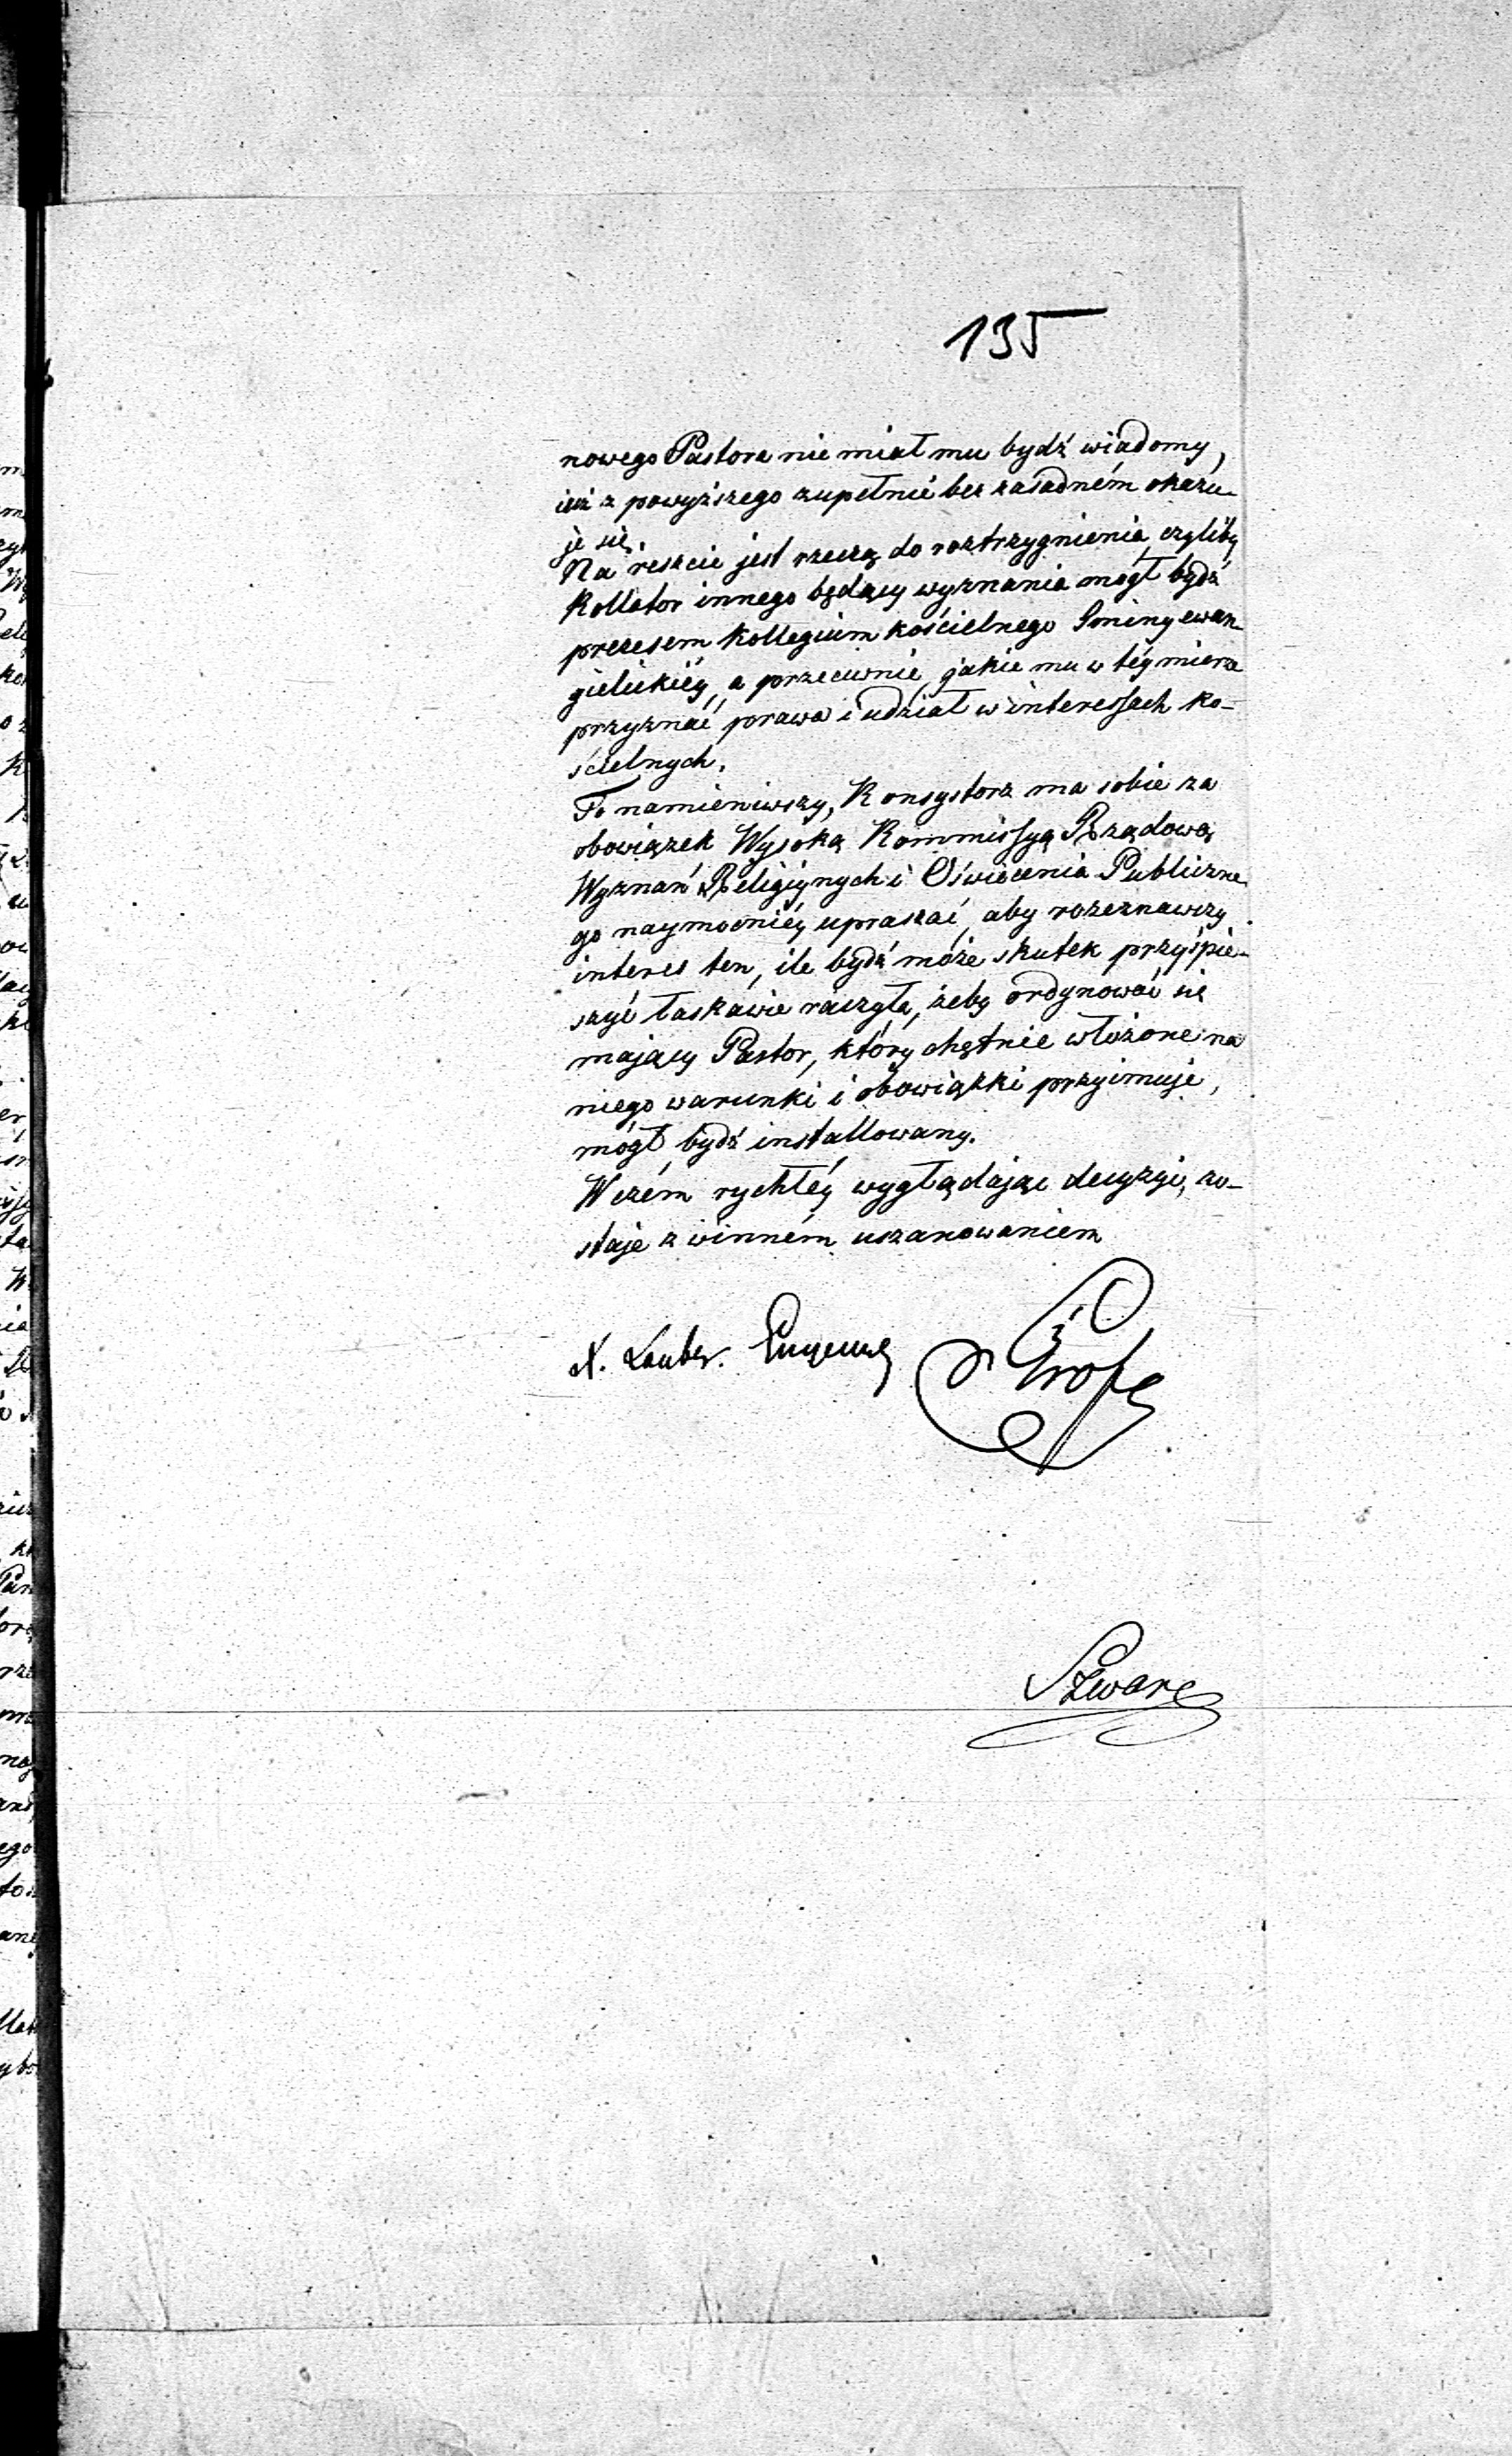 135
nowego Pastora nie miał mu bydź wiadomy,
iuż z powyższego zupełnie bez zasadném okazu-
je się.
Na reszcie jest rzeczą do roztrzygnienia, czyliby
Kollator innego będący wyznania mógł bydź
prezesem Kollegium kościelnego Gminy ewan-
gielickiéy, a przeciwnie, jakie mu w téy mierze
przyznać prawa i udział w interessach ko-
ścielnych.
To namieniwszy, Konsystorz ma sobie za
obowiązek Wysoką Kommissyą Rządową
Wyznań Religiynych i Oświecenia Publiczne-
go naymocniéy upraszać, aby rozeznawszy
interes ten, ile bydź może skutek przyśpie-
szyć łaskawie raczyła, żeby ordynować się
mający Pastor, który chętnie włożone na
niego warunki i obowiązki przyimuje,
mógł bydź installowany.
W czém rychłéy wyglądając decyzyi, zo-
staje z winném uszanowaniem
X. Lauber.
Szwarc